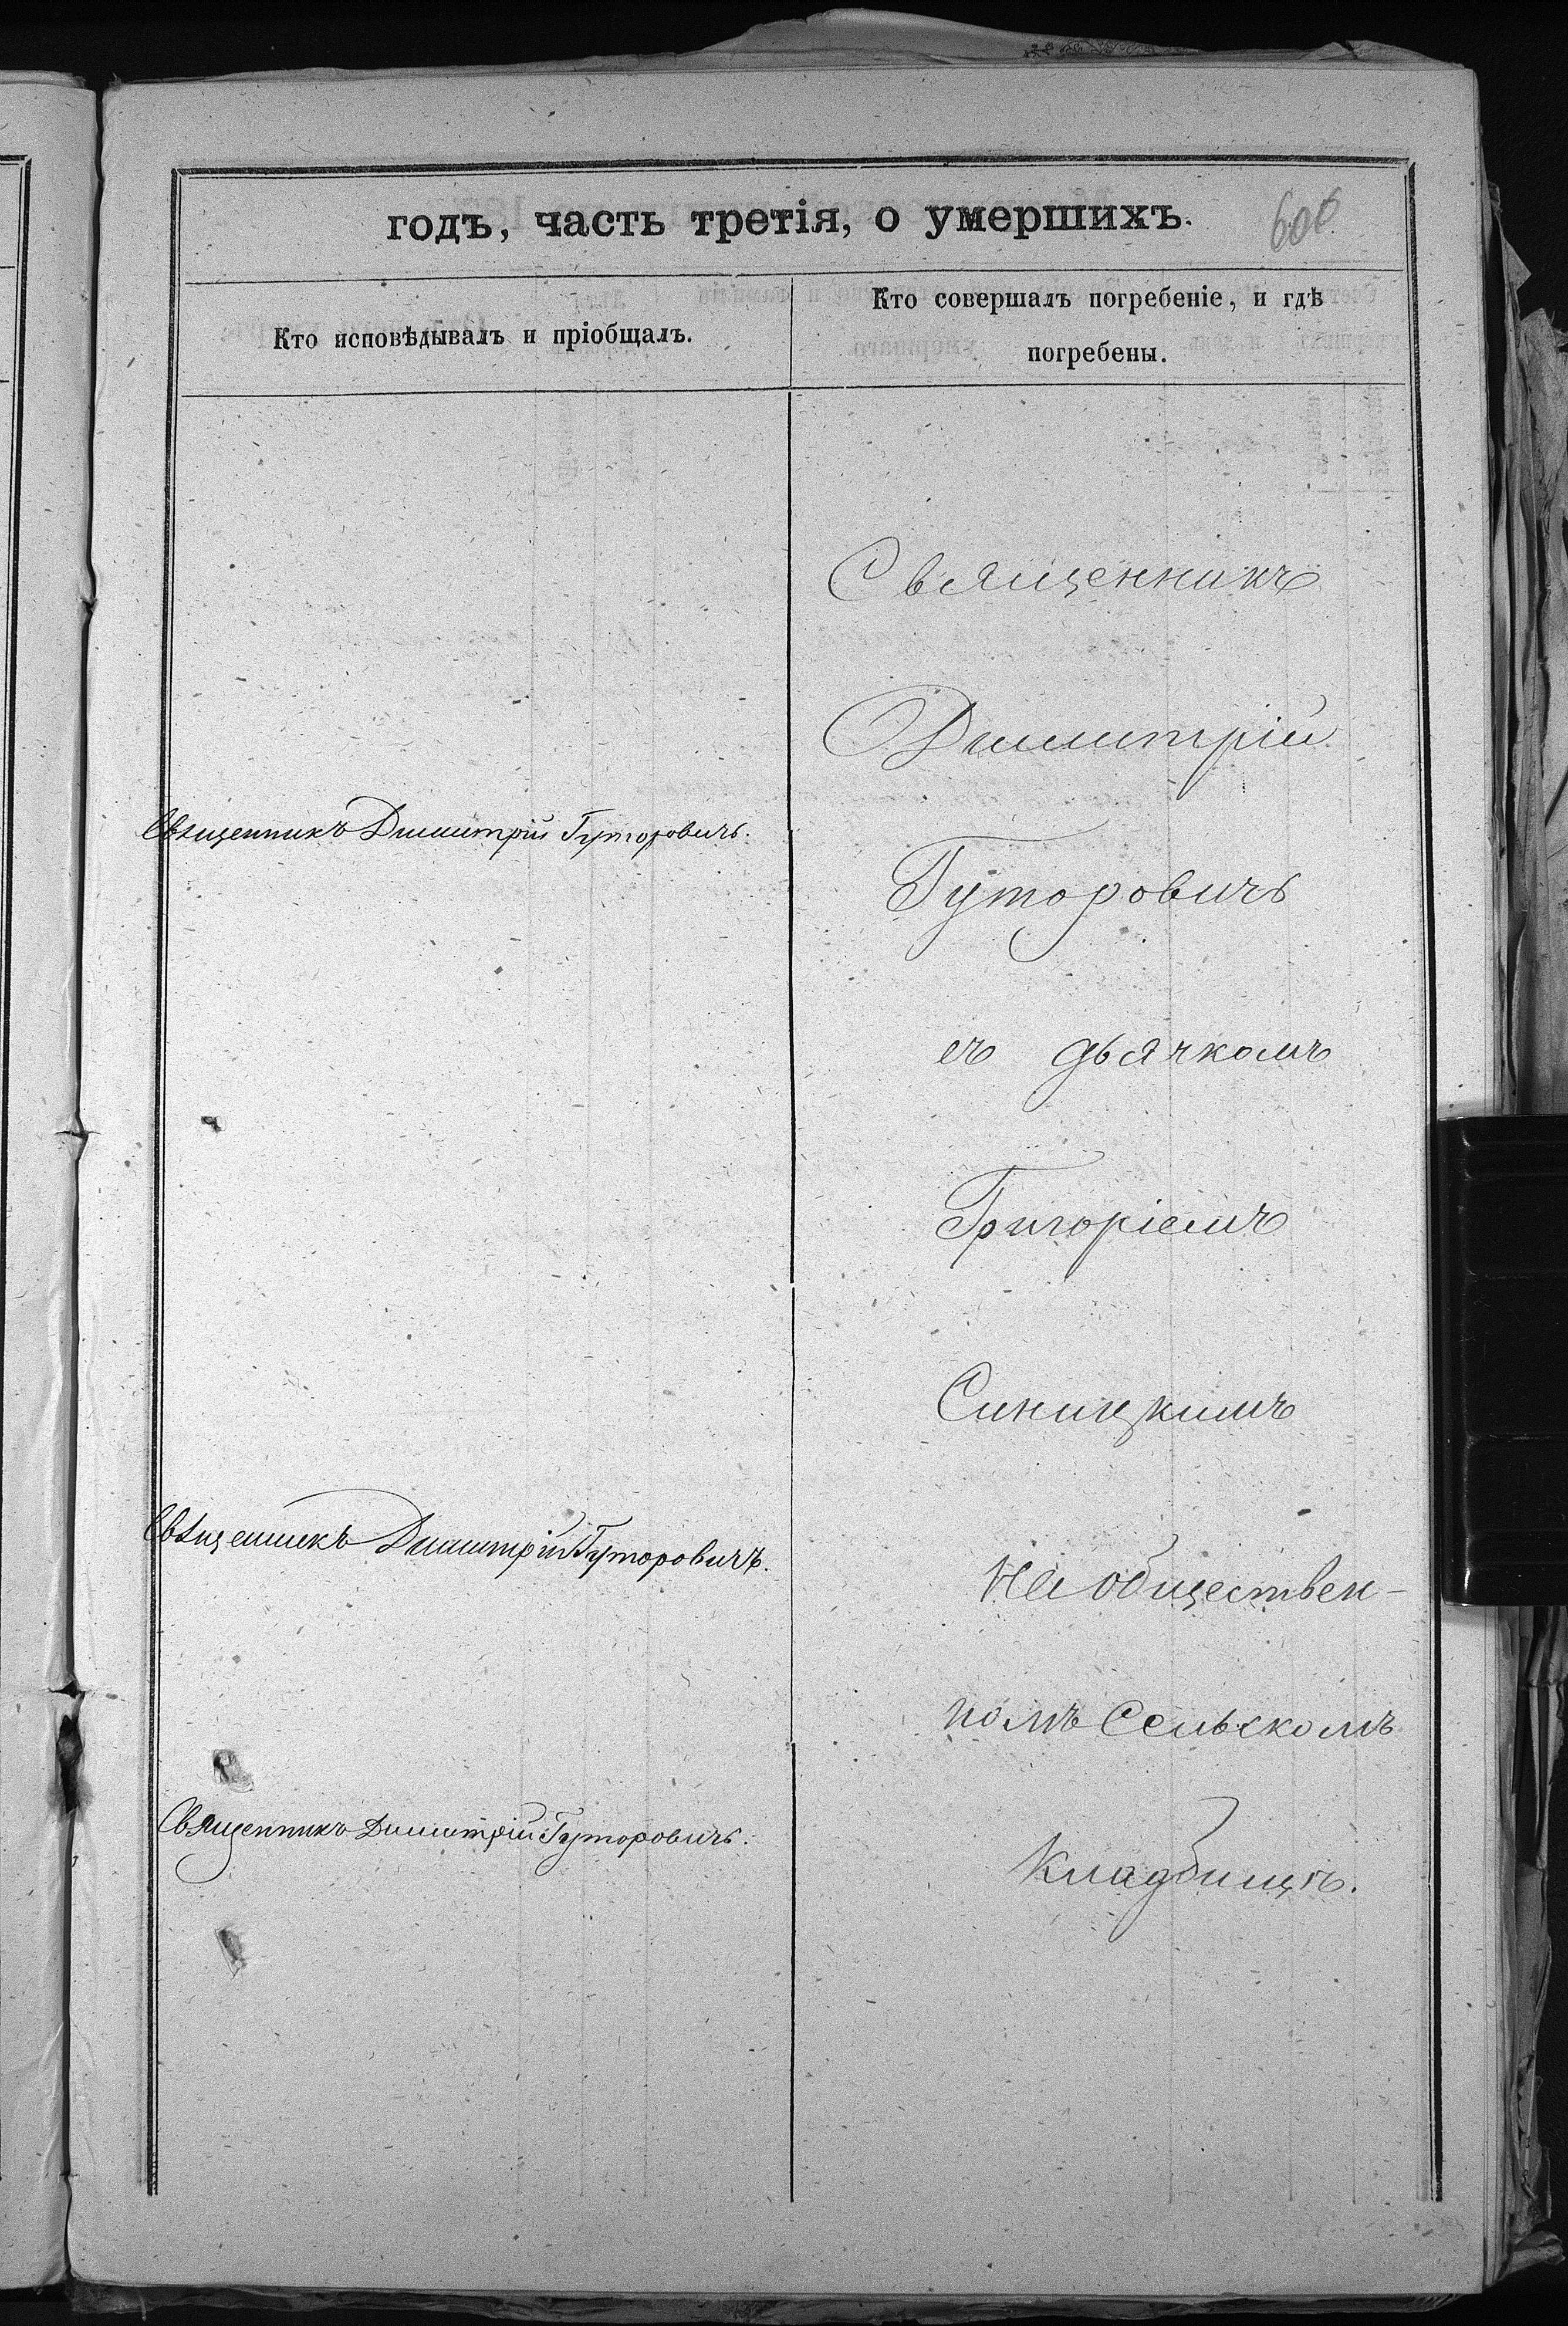 годъ, часть третія, о умершихъ.
606
Кто исповѣдывалъ и пріобщалъ.
Кто совершалъ погребеніе, и гдѣ
погребены.
Священникъ Димитрій Гуторовичъ.
Священникъ Димитрій Гуторовичъ.
Священникъ Димитрій Гуторовичъ.
Священникъ
Димитрій
Гуторовичъ
съ дьячкомъ
Григоріемъ
Синицкимъ
На обществен-
номъ Сельскомъ
Кладбищѣ.